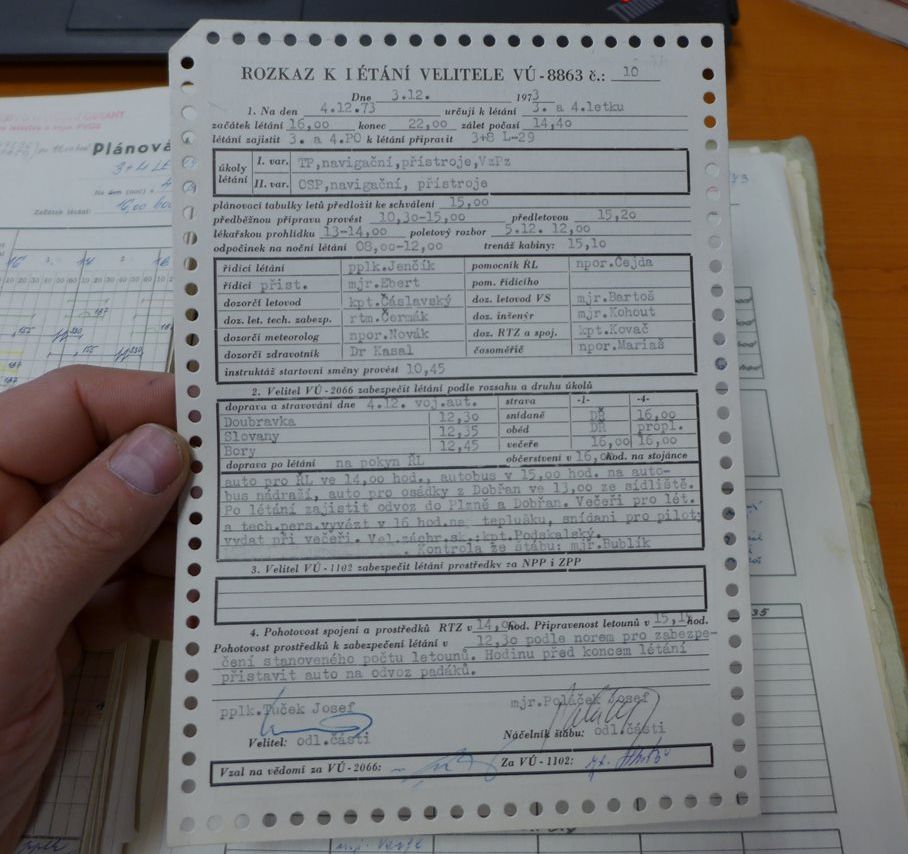 ROZKAZ K LÉTÁNÍ VELITELE VÚ-8863 č.: 10
Dne 3.12. 1973
1. Na den 4.12.73 určuji k létání 3. a 4.letku
začátek létání 16,00 konec 22,00 zálet počasí 14,40
létání zajistit 3. a 4.PO k létání připravit 3+8 L-29
úkoly létání I. var. TP,navigační,přístroje,VzPz
II. var. OSP,navigační, přístroje
plánovací tabulky letů předložit ke schválení 15,00
předběžnou přípravu provést 10,30-15,00 předletovou 15,20
lékařskou prohlídku 13-14,00 poletový rozbor 5.12. 12,00
odpočinek na noční létání 08,00-12,00 trenáž kabiny: 15,10
řídící létání pplk.Jenčík pomocník ŘL npor.Čejda
řídící přist. mjr.Ebert pom. řídícího
dozorčí letovod kpt.Čáslavský doz. letovod VS mjr.Bartoš
doz. let. tech. zabezp. rtm.Čermák doz. inženýr mjr.Kohout
dozorčí meteorolog npor.Novák doz. RTZ a spoj. kpt.Kovač
dozorčí zdravotník Dr Kasal časoměřič npor.Mariaš
instruktáž startovní směny provést 10,45
2. Velitel VÚ-2066 zabezpečit létání podle rozsahu a druhu úkolů
doprava a stravování dne 4.12. voj.aut. strava -1- -4-
Doubravka 12,30 snídaně DŘ 16,00
Slovany 12,35 oběd DŘ propl.
Bory 12,45 večeře 16,00 16,00
doprava po létání na pokyn ŘL občerstvení v 16,00 hod. na stojánce
auto pro ŘL ve 14,00 hod., autobus v 15,00 hod. na auto-
bus nádraží, auto pro osádky z Dobřan ve 13,00 ze sídliště.
Po létání zajistit odvoz do Plzně a Dobřan. Večeři pro lét.
a tech.pers.vyvézt v 16 hod.na teplušku, snídani pro piloty
vydat při večeři. Vel.záchr.sk.:kpt.Podskalský.
Kontrola ze štábu: mjr.Bublík
3. Velitel VÚ-1102 zabezpečit létání prostředky za NPP i ZPP
4. Pohotovost spojení a prostředků RTZ v 14,00 hod. Připravenost letounů v 15,15 hod.
Pohotovost prostředků k zabezpečení létání v 12,30 podle norem pro zabezpe-
čení stanoveného počtu letounů. Hodinu před koncem létání
přistavit auto na odvoz padáků.
pplk.Tuček Josef mjr.Poláček Josef
Velitel: odl.části Náčelník štábu: odl.části
Vzal na vědomí za VÚ-2066: Za VÚ-1102:
Plánova
3+4 LE
Začátek létání: 16,00